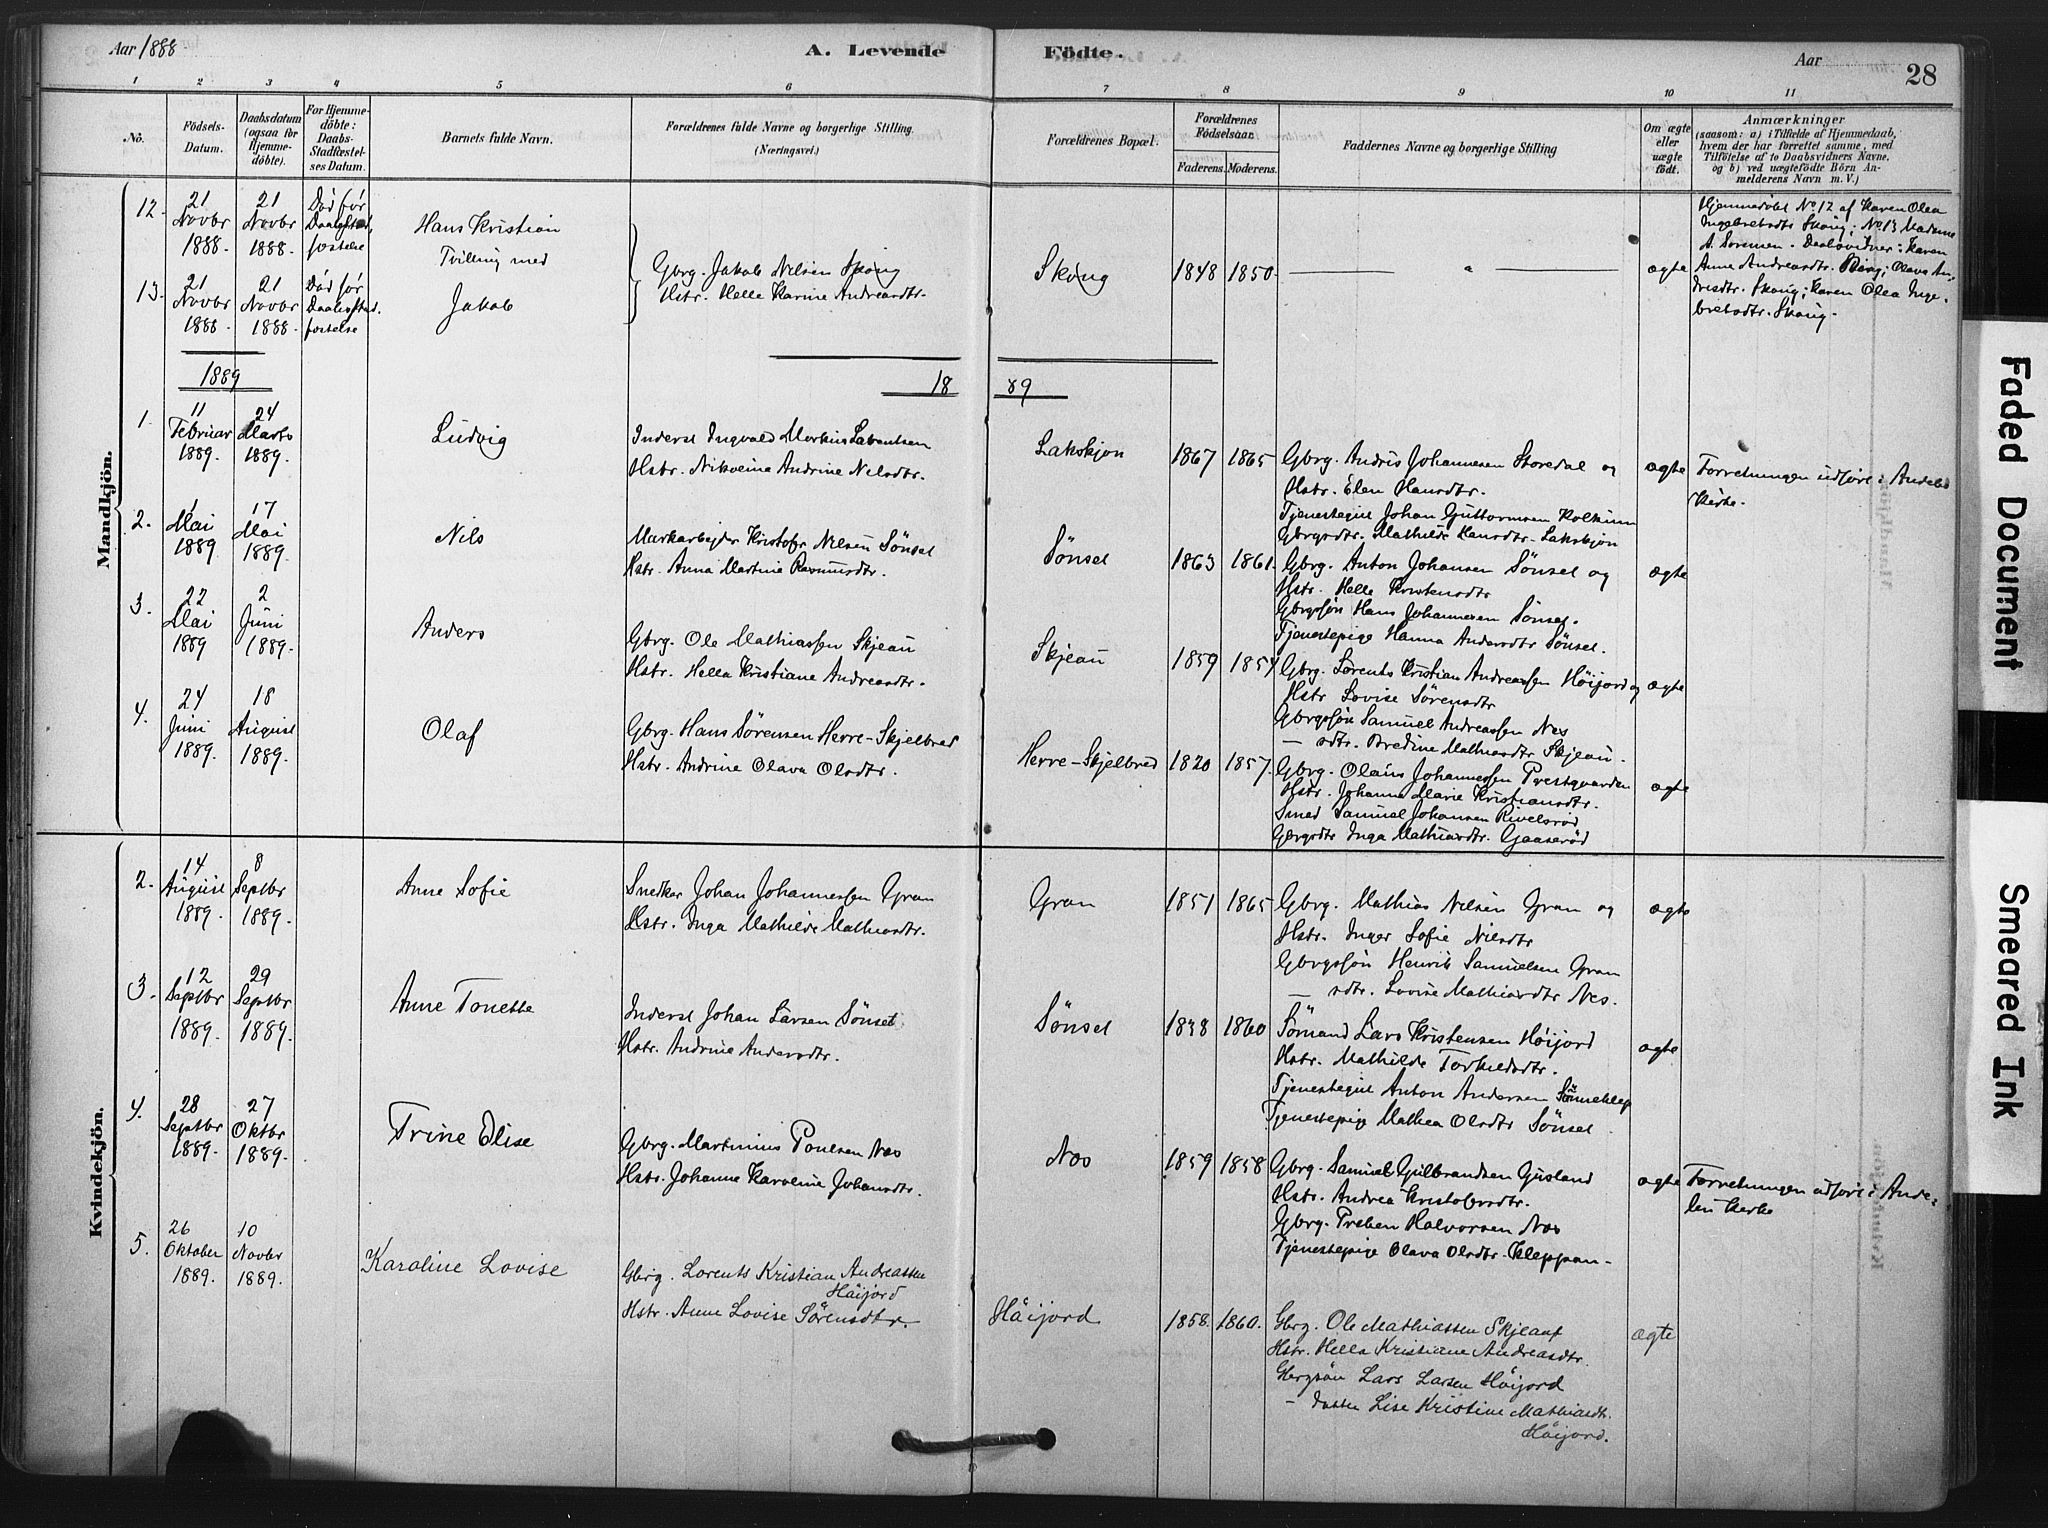 Aar 1888
A. Levende Födte.
Aar
28
1 2 3 4 5 6 7 8 9 10 11
No.
Födsels-
Datum.
Daabsdatum
(ogsaa for
Hjemme-
döbte).
For Hjemme-
döbte:
Daabs-
Stadfæstel-
ses Datum.
Barnets fulde Navn.
Forældrenes fulde Navne og borgerlige Stilling.
(Næringsvei.)
Forældrenes Bopæl.
Forældrenes
Födselsaar.
Faderens. Moderens.
Faddernes Navne og borgerlige Stilling
Om ægte
eller
uægte
födt.
Anmærkninger
(saasom: a) i Tilfælde af Hjemmedaab,
hvem der har forrettet samme, med
Tilföielse af to Daabsvidners Navne,
og b) ved uægtefödte Börn An-
melderens Navn m. V.)
Mandkjön.
12.
21
Novbr
1888.
21
Novbr
1888.
Död før
Daabsstad
fæstelse
Hans Kristian
Tvilling med
Gbrg. Jakob Nilsen Skoug
Hstr. Helle Karine Andreasdtr.
Skoug
1848 1850.
ægte
Hjemmedöbt No 12 af Karen Olea
Ingebretsdtr Skoug; No 13 Madame
A. Sorensen. Daabsvidner: Karen
Anne Andreasdtr. Berg; Olava An-
dresdtr. Skoug; Karen Olea Inge-
bretsdtr. Skoug.
13.
21
Novbr
1888.
21
Novbr
1888.
Död før
Daabsstad.
fæstelse
Jakob
1889
18 89
1.
11
Februar
1889.
24
Marts
1889.
Ludvig
Inderst Ingvald Markus Laventsen
Hstr. Nikoline Andrine Nilsdtr.
Lakskjøn
1867 1865
Gbrg. Andris Johannesen Storedal og
Hstr. Elen Hansdtr.
Tjenestegut Johan Guttormsen Kolkinn
Gbrgsdtr. Mathilde Hansdtr. Lakskjøn
ægte
Forretningen udført i Andebu
Kirke.
2.
1
Mai
1889
17
Mai
1889.
Nils
Markarbejder Kristofr Nilsen Sönset
Hstr. Anna Martine Rasmusdtr.
Sönset
1863 1861.
Gbrg. Anton Johansen Sönset og
Hstr. Helle Kristensdtr
Gbrgssön Hans Johannesen Sönset.
Tjenestepige Hanna Andersdtr Sönset.
ægte
3.
22
Mai
1889
2
Juni
1889.
Anders
Gbrg. Ole Mathiassen Skjeau
Hstr. Hella Kristiane Andreasdtr.
Skjeau
1859 1854
Gbrg. Lorents Kristian Andreassen Höijord og
Hstr Lovise Sörensdtr
Gbrgssön Samuel Andreassen Nes
— sdtr. Bredine Mathiasdtr Skjeau.
ægte
4.
24
Juni
1889.
18
August
1889.
Olaf
Gbrg. Hans Sörensen Herre-Skjelbred
Hstr. Andrine Olava Olsdtr.
Herre-Skjelbred
1820 1857.
Gbrg. Olaus Johannessen Prestgaarden
Hstr. Johanne Marie Kristiansdtr.
Smed Samuel Johansen Rivelsrød
Gbrgsdtr Inga Mathiasdtr. Gaaserød
ægte
Kvindekjön.
2.
14
August
1889.
8
Septbr
1889.
Anne Sofie
Snedker Johan Johannessen Gran
Hstr. Inga Mathilde Mathiasdtr.
Gran
1851 1865
Gbrg. Mathias Nilsen Gran og
Hstr. Inger Sofie Nilsdtr
Gbrgssön Henrik Samuelsen Gran
— sdtr. Lovise Mathiasdtr Nes.
ægte
3.
12
Septbr
1889.
29
Septbr
1889.
Anne Tonette
Inderst Johan Larsen Sönset
Hstr. Andrine Andersdtr.
Sönset
1838 1860
Sömand Lars Kristensen Höijord
Hstr. Mathilde Torkildsdtr.
Tjenestegut Anton Andersen Sönneklep
Tjenestepige Mathea Olsdtr Sönset
ægte
4.
28
Septbr
1889.
27
Oktbr
1889.
Trine Elise
Gbrg. Martinius Poulsen Næs
Hstr. Johanne Karoline Johansdtr.
Næs
1859 1858
Gbrg. Samuel Gulbrandsen Gusland
Hstr. Andrea Kristofersdtr.
Gbrg. Preben Halvorsen Næs
Tjenestepige Olava Olsdtr. Kleppan.
ægte
Forretningen udført i Ande-
bu Kirke
5.
26
Oktober
1889.
10
Novbr
1889.
Karoline Lovise
Gbrg. Lorents Kristian Andreassen
Höijord
Hstr. Anne Lovise Sörensdtr.
Höijord
1858. 1860.
Gbrg. Ole Mathiassen Skjeauf
Hstr. Hella Kristiane Andreasdtr.
Gbrgsön Lars Larsen Höijord
— datter Lise Kristine Mathiasdt.
Höijord.
ægte
Faded Document
Smeared Ink